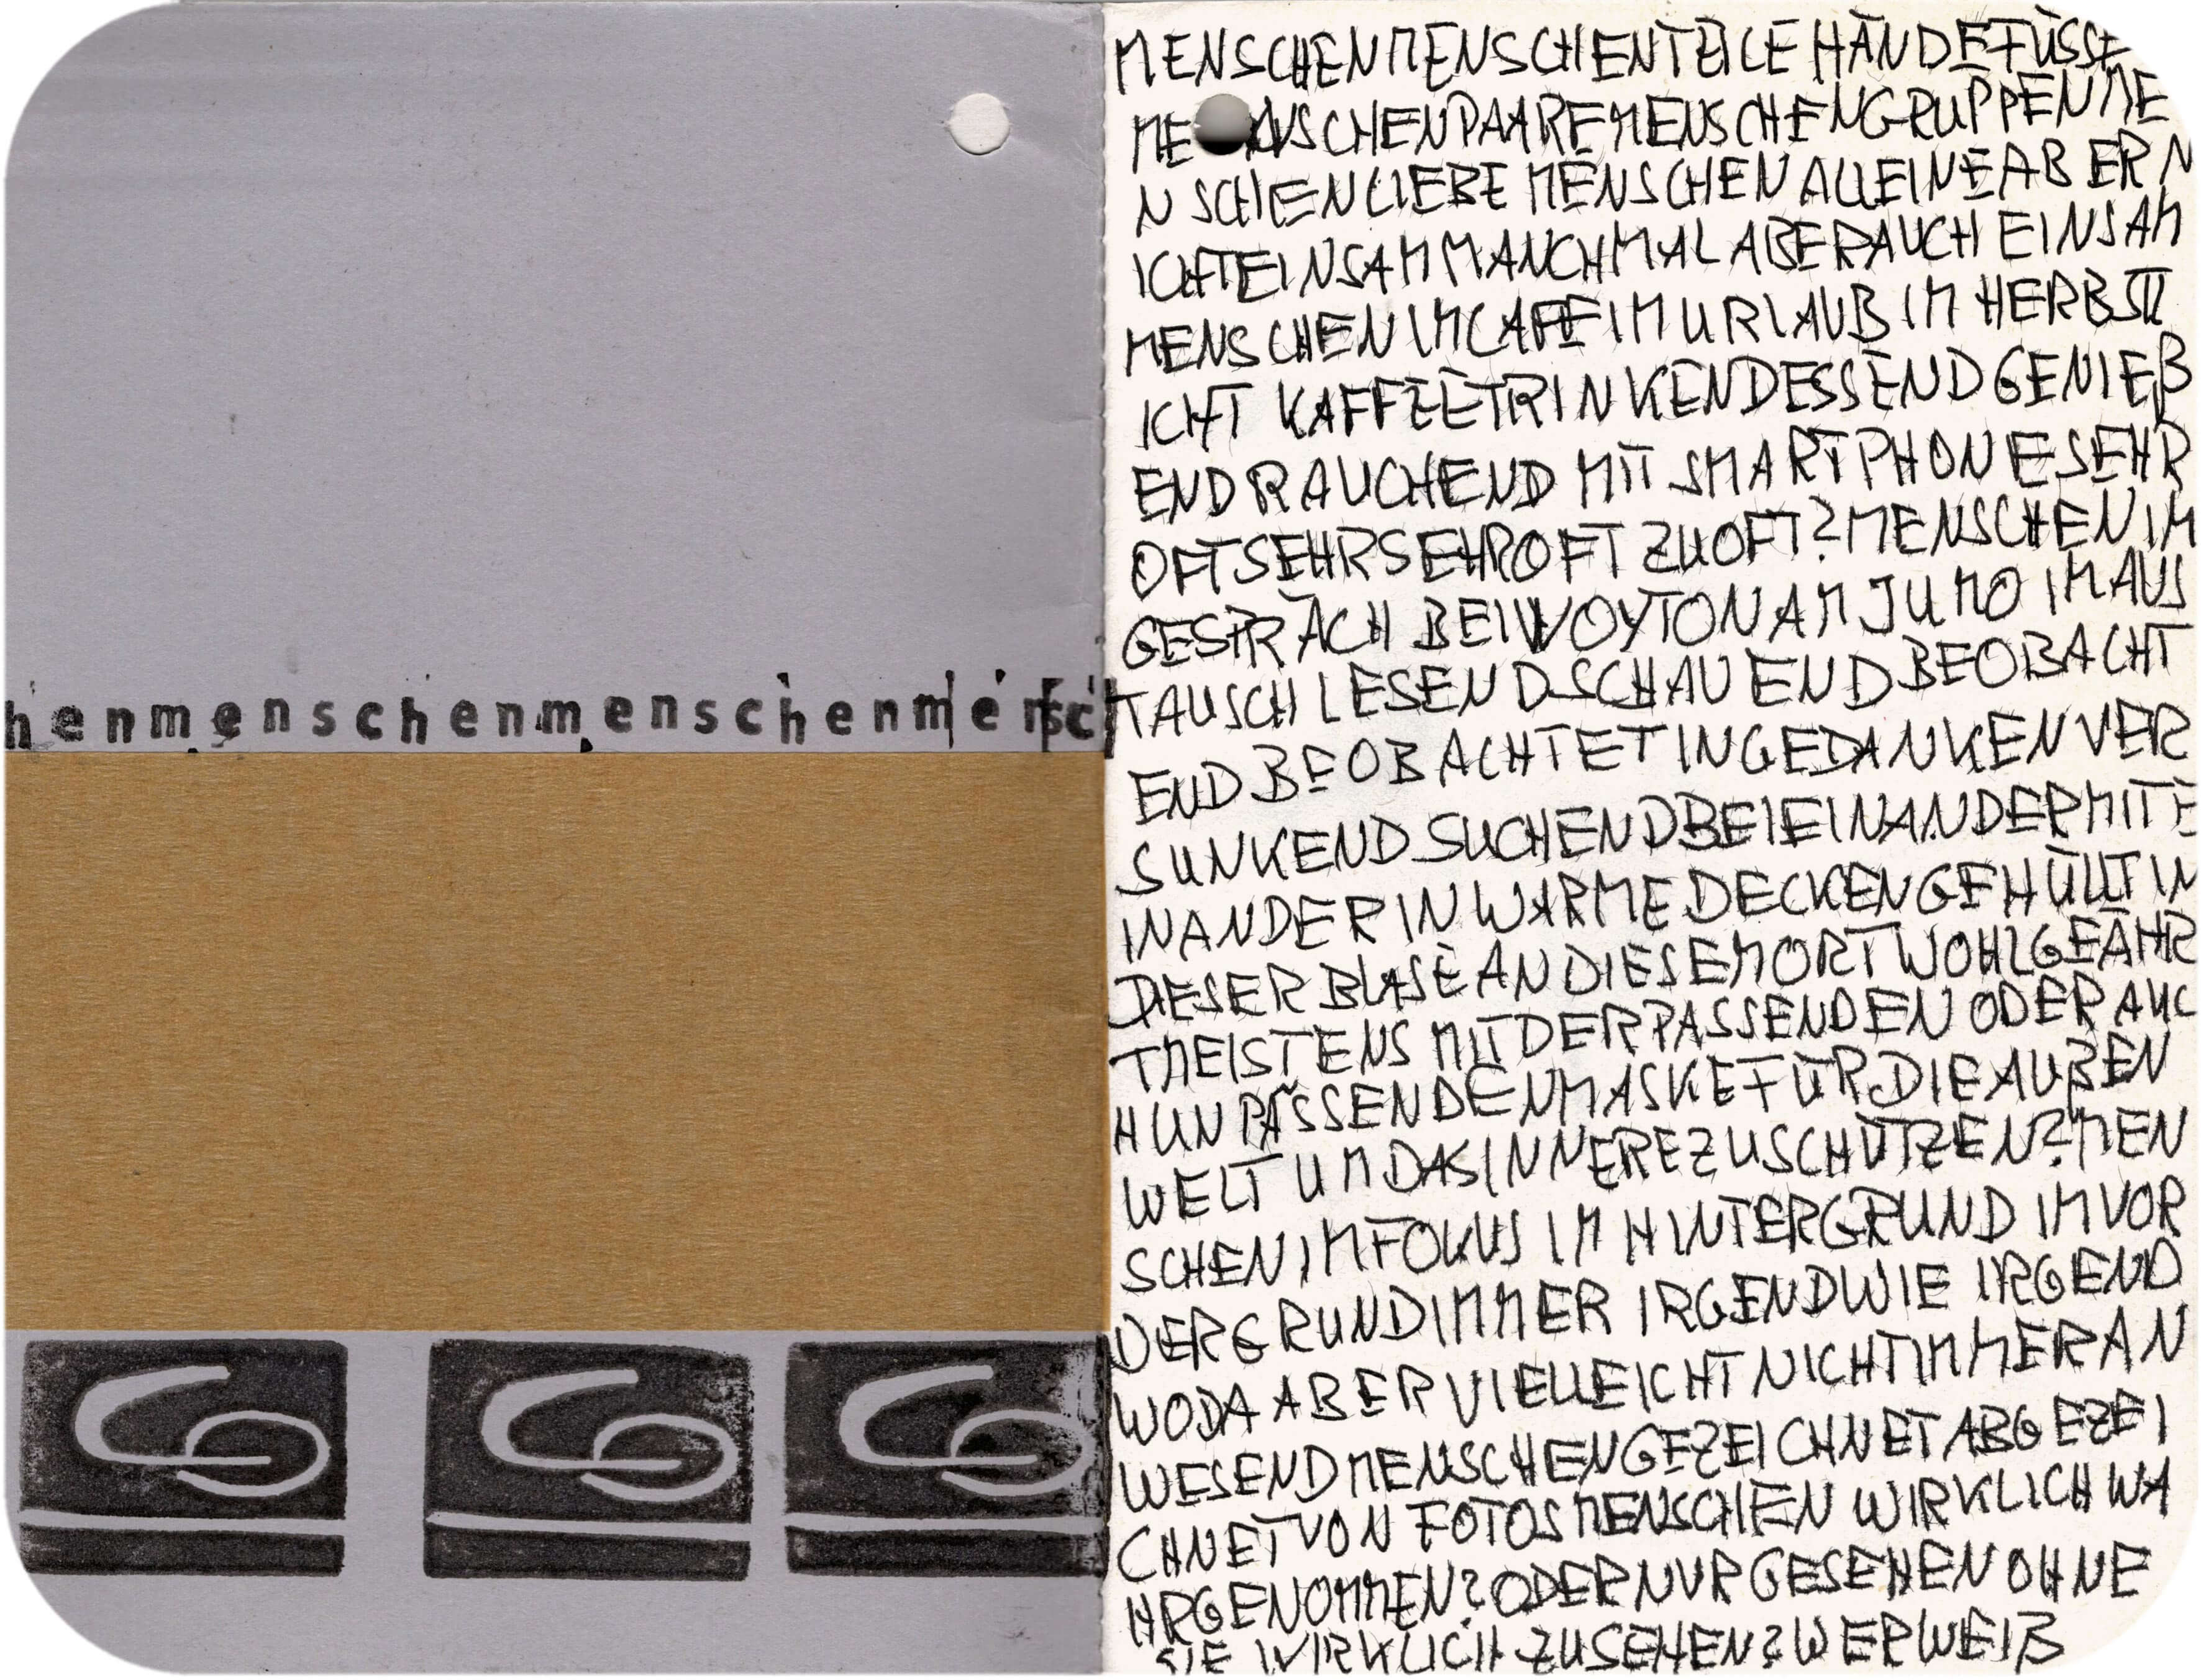 henmenschenmenschenmensch
MENSCHENMENSCHENTEILE HÄNDEFÜSSE
MENSCHENPAAREMENSCHENGRUPPENME
NSCHENLIEBE MENSCHEN ALLEINEABER N
ICHTEINSAM MANCHMAL ABERAUCH EINSAM
MENSCHEN IMCAFEIMURLAUB IM HERBST
ICHT KAFFEETRINKENDESSEND GENIEß
END RAUCHEND MIT SMARTPHONE SEHR
OFTSEHRSEHROFT ZUOFT? MENSCHEN IM
GESPRÄCH BEIWOYTONAM JUMO IM AUS
TAUSCH LESEND SCHAUEND BEOBACHT
END BEOBACHTET INGEDANKENVER
SUNKEND SUCHENDBEIEINANDERMITE
INANDER IN WARME DECKENGEHÜLLT IN
DIESER BLASE AN DIESEMORT WOHLGEFÄHR
TMEISTENS MITDERPASSENDEN ODER AUC
HUNPASSENDENMASKE FÜR DIE AUßEN
WELT UMDASINNERE ZUSCHÜTZEN? MEN
SCHEN IMFOKUS IM HINTERGRUND IM VOR
DERGRUNDIMMER IRGENDWIE IRGEND
WODA ABER VIELLEICHT NICHTIMMERAN
WESEND MENSCHENGEZEICHNET ABGEZEI
CHNETVON FOTOS MENSCHEN WIRKLICH WA
HRGENOMMEN? ODERNUR GESEHEN OHNE
SIE WIRKLICH ZUSEHEN? WERWEIß